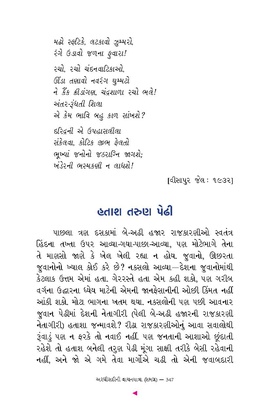 મઢો સ્ફટિકે, લટકાવો ઝુમ્મરો,
રંગે ઉડાવો જળના ફુવારા!
રચો, રચો ચંદનવાટિકાઓ,
ઊંડા તણાવો નવરંગ ઘુમ્મટો
ને કૈંક ક્રીડાંગણ, ચંદ્રશાળા રચો ભલે!
અંતર-રૂંધતી શિલા
એ કેમ ભાવિ બહુ કાળ સાંખશે?
દરિદ્રની એ ઉપહાસલીલા
સંકેલવા, કોટિક જીભ ફેલતો
ભૂખ્યાં જનોનો જઠરાગ્નિ જાગશે;
ખંડેરની ભસ્મકણી ન લાધશે!
[વીસાપુર જેલ: ૧૯૩૨]
હતાશ તરુણ પેઢી
પાછલા ત્રણ દસકામાં બે-અઢી હજાર રાજકારણીઓ સ્વતંત્ર
હિંદના તખ્તા ઉપર આવ્યા-ગયા-પાછા-આવ્યા, પણ મોટેભાગે તેના
તે માણસો જાણે કે ખેલ ખેલી રહ્યા ન હોય. જુવાનો, ઊછરતા
જુવાનોનો ખ્યાલ કોઈ કરે છે? નકસલો આવ્યા—દેશના જુવાનોમાંથી
કેટલાક ઉત્તમ એમાં હતા. ગેરરસ્તે હતા એમ કહી શકો, પણ ગરીબ
વર્ગના ઉદ્ધારના ધ્યેય માટેની એમની જાનફેસાનીની ઓછી કિંમત નહીં
આંકી શકો. મોટા ભાગના ખતમ થયા. નકસલોની પણ પછી આવનાર
જુવાન પેઢીમાં દેશની નેતાગીરી (પેલી બે-અઢી હજારની રાજકારણી
નેતાગીરી) હતાશા જન્માવશે? રીઢા રાજકારણીઓનું આવા સવાલોથી
રૂંવાડું પણ ન ફરકે તો નવાઈ નહીં, પણ જનતાની આશાઓ છૂંદાતી
રહેશે તો હતાશ બનેલી તરુણ પેઢી મૂંગા સાક્ષી તરીકે બેસી રહેવાની
નહીં, અને જો એ ગમે તેવા માર્ગોએ ચઢી તો એની જવાબદારી
અરધીસદીની વાચનયાત્રા (ભાગ૨) — 347